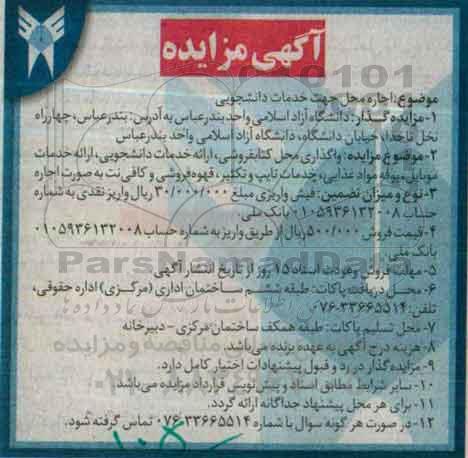 آگهی مزایده
موضوع: اجاره محل جهت خدمات دانشجویی
۱-مزایده گذار: دانشگاه آزاد اسلامی واحد بندرعباس به آدرس: بندرعباس، چهارراه
نخل ناخدا، خیابان دانشگاه، دانشگاه آزاد اسلامی واحد بندرعباس
۲-موضوع مزایده: واگذاری محل کتابفروشی، ارائه خدمات دانشجویی، ارائه خدمات
موبایل، بوفه مواد غذایی، خدمات تایپ و تکثیر، قهوه فروشی و کافی نت به صورت اجاره
۳-نوع و میزان تضمین: فیش واریزی مبلغ ۳۰/۰۰۰/۰۰۰ ریال واریز نقدی به شماره
حساب ۰۱۰۵۹۳۶۱۳۲۰۰۸ بانک ملی.
۴-قیمت فروش ۵۰۰/۰۰۰ ریال از طریق واریز به شماره حساب ۰۱۰۵۹۳۶۱۳۲۰۰۸
بانک ملی
۵- مهلت فروش وعودت اسناد ۱۵ روز از تاریخ انتشار آگهی
۶- محل دریافت پاکات: طبقه ششم ساختمان اداری (مرکزی) اداره حقوقی،
تلفن: ۳۳۶۶۵۵۱۴-۰۷۶
۷- محل تسلیم پاکات: طبقه همکف ساختمان مرکزی – دبیرخانه
۸-هزینه درج آگهی به عهده برنده می‌باشد.
۹- مزایده گذار در رد و قبول پیشنهادات اختیار کامل دارد.
۱۰-سایر شرایط مطابق اسناد و پیش‌نویس قرارداد مزایده می‌باشد.
۱۱- برای هر محل پیشنهاد جداگانه ارائه گردد.
۱۲- در صورت هر گونه سوال با شماره ۳۳۶۶۵۵۱۴-۰۷۶ تماس گرفته شود.
ParsNamadData